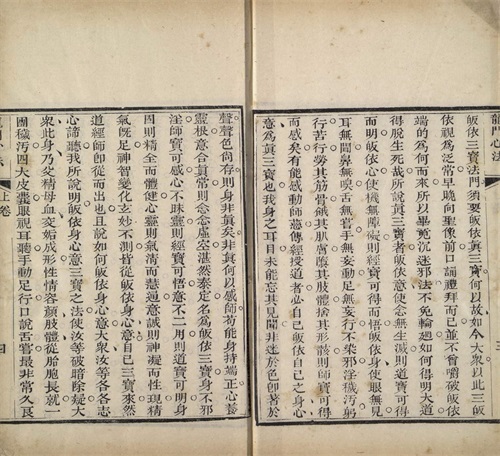 龍門心法
三
皈依三寶法門須要皈依眞三寶何以故如今大衆以此三皈
依視爲泛常早曉向聖像前口誦禮拜而已並不曾嚼破皈依
端的爲何而來所以畢竟沉迷邪法不免輪廻如何得明大道
得脫生死哉所說眞三寶者皈依意使念無生滅則道寶可得
而明皈依心使機無障礙則經寶可得而悟皈依身使眼無見
耳無聞鼻無嗅舌無嘗手無妄動足無妄行不染邪淫穢汚躬
行苦行勞其筋骨餓其肌膚墮其肢體捨其形骸則師寶可得
而感矣有能感動師尊傳經授道者必自己皈依自己之身心
意爲眞三寶也我身之耳目未能忘其見聞非迷於色卽著於
聲聲色尙存則身非眞矣非眞何以感師苟能身持端正心養
靈根意合眞常則念念虛空湛然泰定名爲皈依三寶身不邪
淫師寶可感心不昧靈則經寶可悟意不二用則道寶可明身
固則精全而體健心靈則氣清而慧通意誠則神凝而性現精
氣旣足神智變化玄妙不測皆從皈依身心意自己三寶來然
道經師卽從而出也且說如何皈依身心意大衆汝等各各志
心諦聽我所說明皈依身心意三寶之法使汝等破暗除疑大
衆此身乃父精母血交媾成形性情容顏肢體從胎胞長就一
團穢汚四大皮囊眼視耳聽手動足行口說舌嘗最非常久良
上卷
四